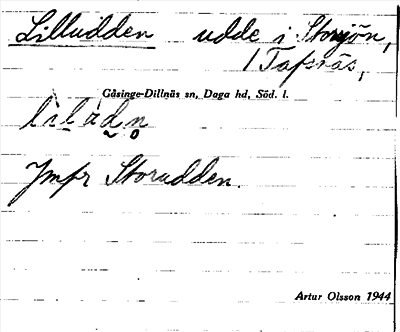 Lilludden udde i Storsjön,
1 Tafsnäs,
Gåsinge-Dillnäs sn, Daga hd, Söd. l.
Jmfr Storudden.
Artur Olsson 1944